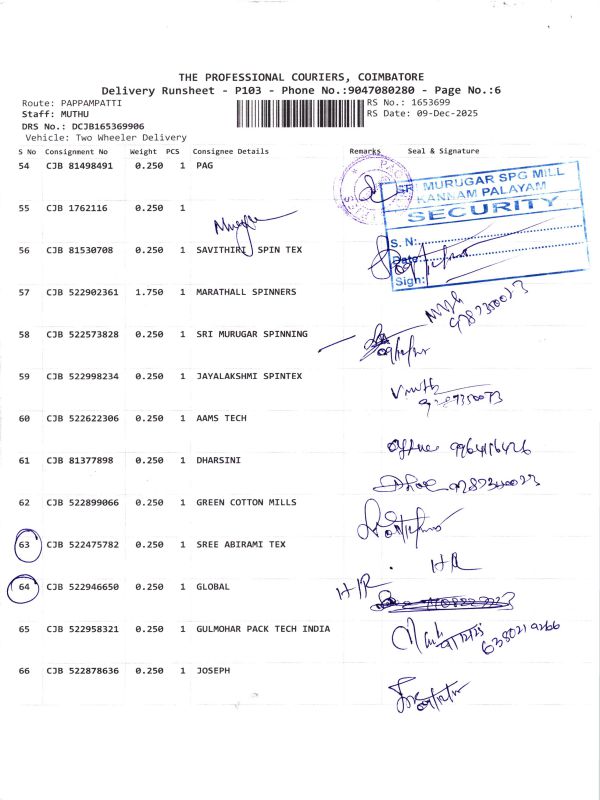 THE PROFESSIONAL COURIERS, COIMBATORE
Delivery Runsheet - P103 - Phone No.:9047080280 - Page No.:6
Route: PAPPAMPATTI
RS No.: 1653699
Staff: MUTHU
RS Date: 09-Dec-2025
DRS No.: DCJB165369906
Vehicle: Two Wheeler Delivery
S No Consignment No Weight PCS Consignee Details Remarks Seal & Signature
54 CJB 81498491 0.250 1 PAG
SRI MURUGAR SPG MILL
KANNAM PALAYAM
SECURITY
55 CJB 1762116 0.250 1
S. N:
56 CJB 81530708 0.250 1 SAVITHIRI SPIN TEX
Date:
Sign:
57 CJB 522902361 1.750 1 MARATHALL SPINNERS
58 CJB 522573828 0.250 1 SRI MURUGAR SPINNING
59 CJB 522998234 0.250 1 JAYALAKSHMI SPINTEX
60 CJB 522622306 0.250 1 AAMS TECH
61 CJB 81377898 0.250 1 DHARSINI
62 CJB 522899066 0.250 1 GREEN COTTON MILLS
63 CJB 522475782 0.250 1 SREE ABIRAMI TEX
H R
64 CJB 522946650 0.250 1 GLOBAL H/R
65 CJB 522958321 0.250 1 GULMOHAR PACK TECH INDIA
6380219266
66 CJB 522878636 0.250 1 JOSEPH